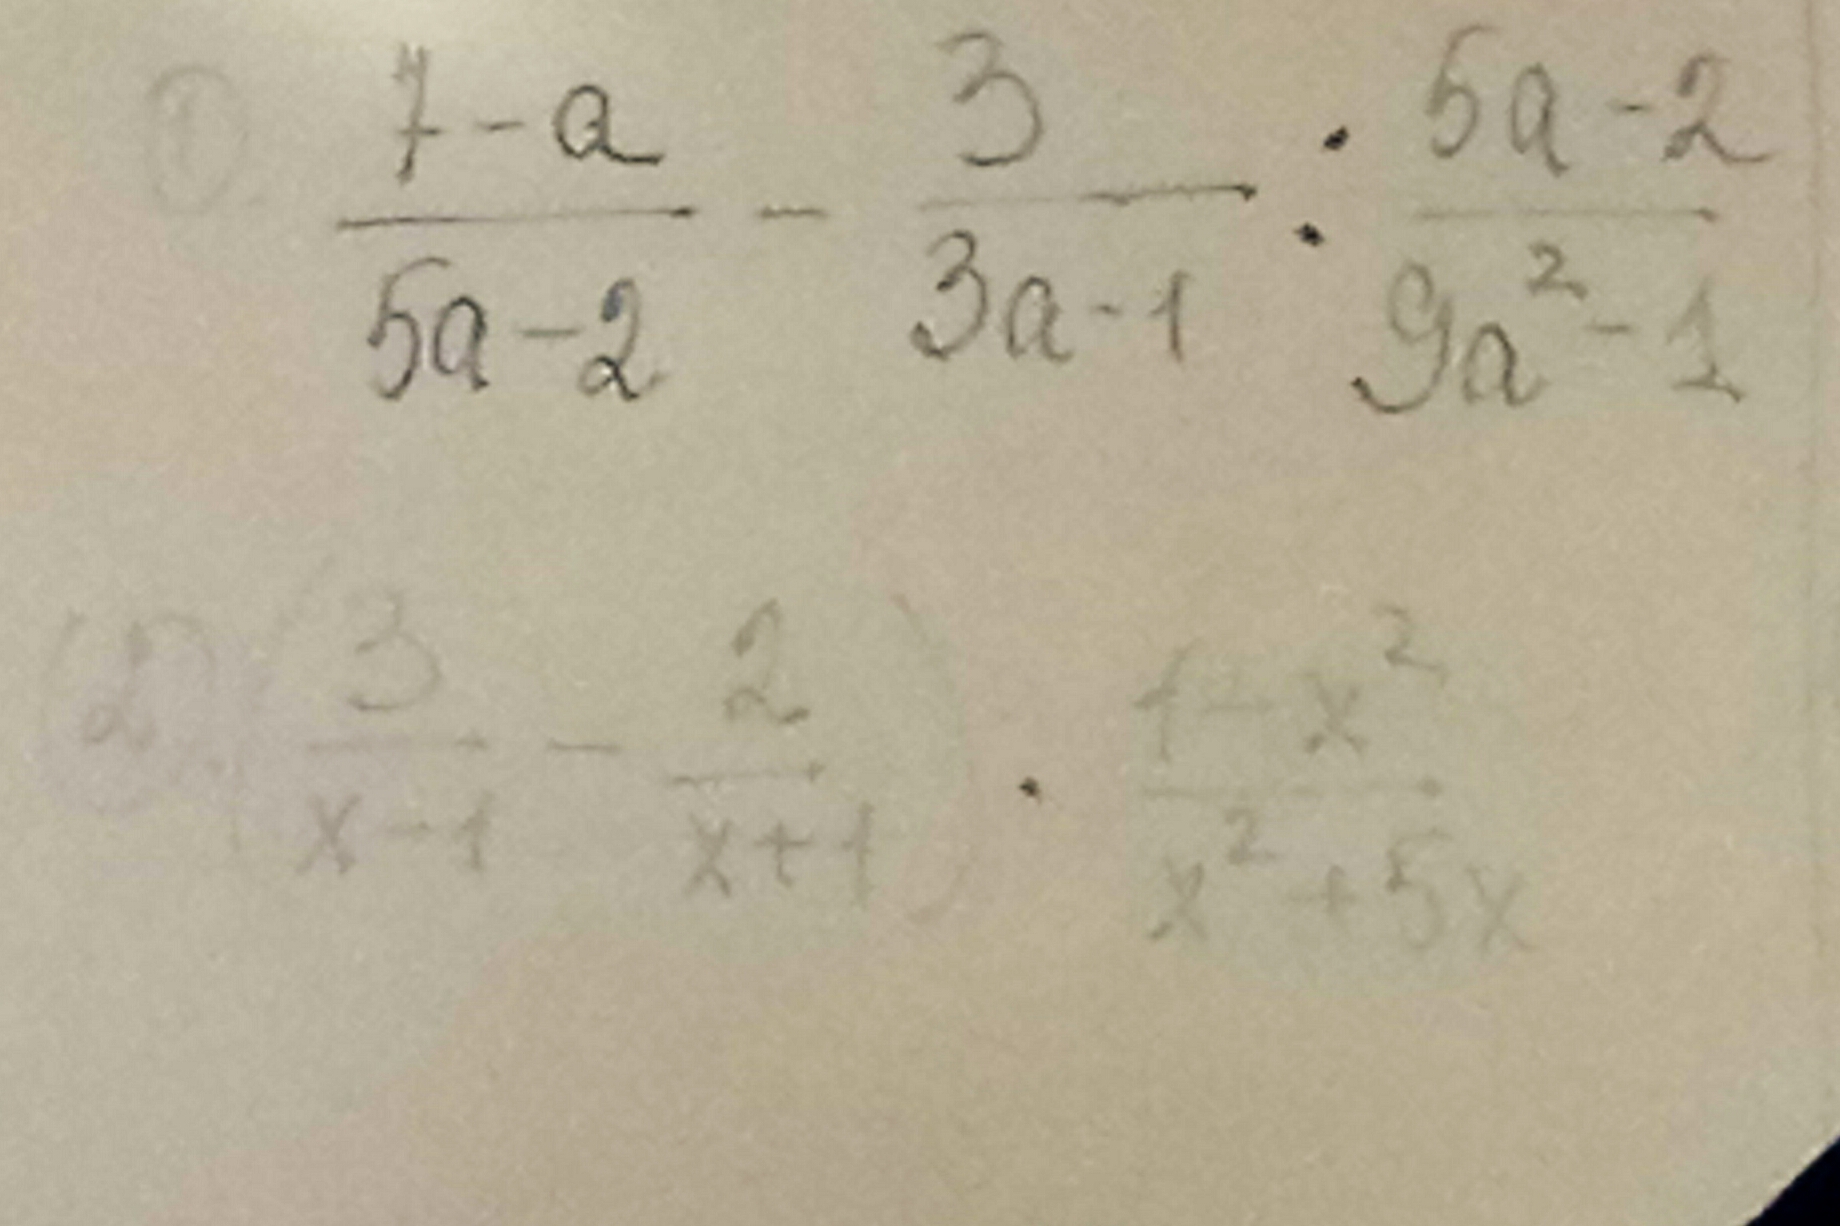 ① (7-a)/(5a-2) - 3/(3a-1) : (5a-2)/(9a²-1)
② (3/(x-1) - 2/(x+1)) · (1-x²)/(x²+5x)